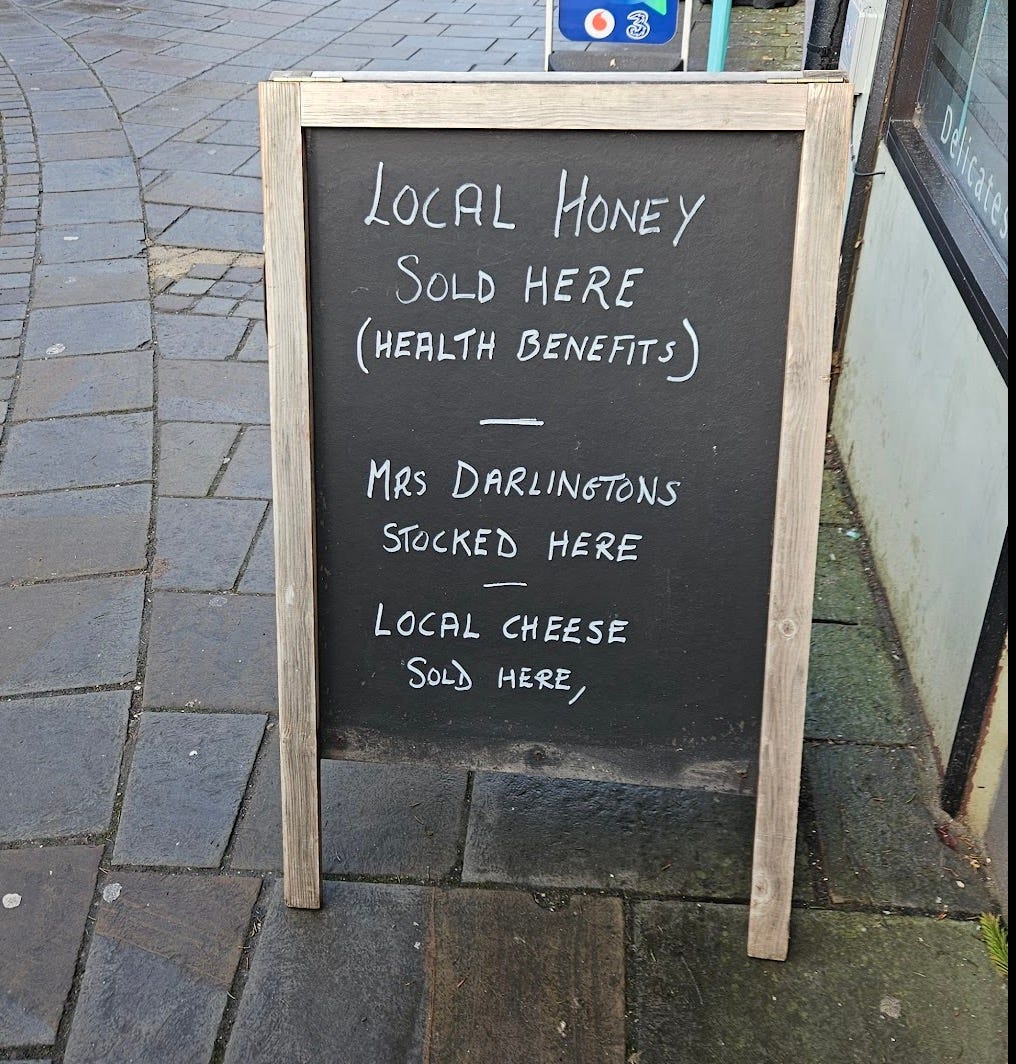 3
LOCAL HONEY
SOLD HERE
(HEALTH BENEFITS)
MRS DARLINGTONS
STOCKED HERE
LOCAL CHEESE
SOLD HERE,
Delicates